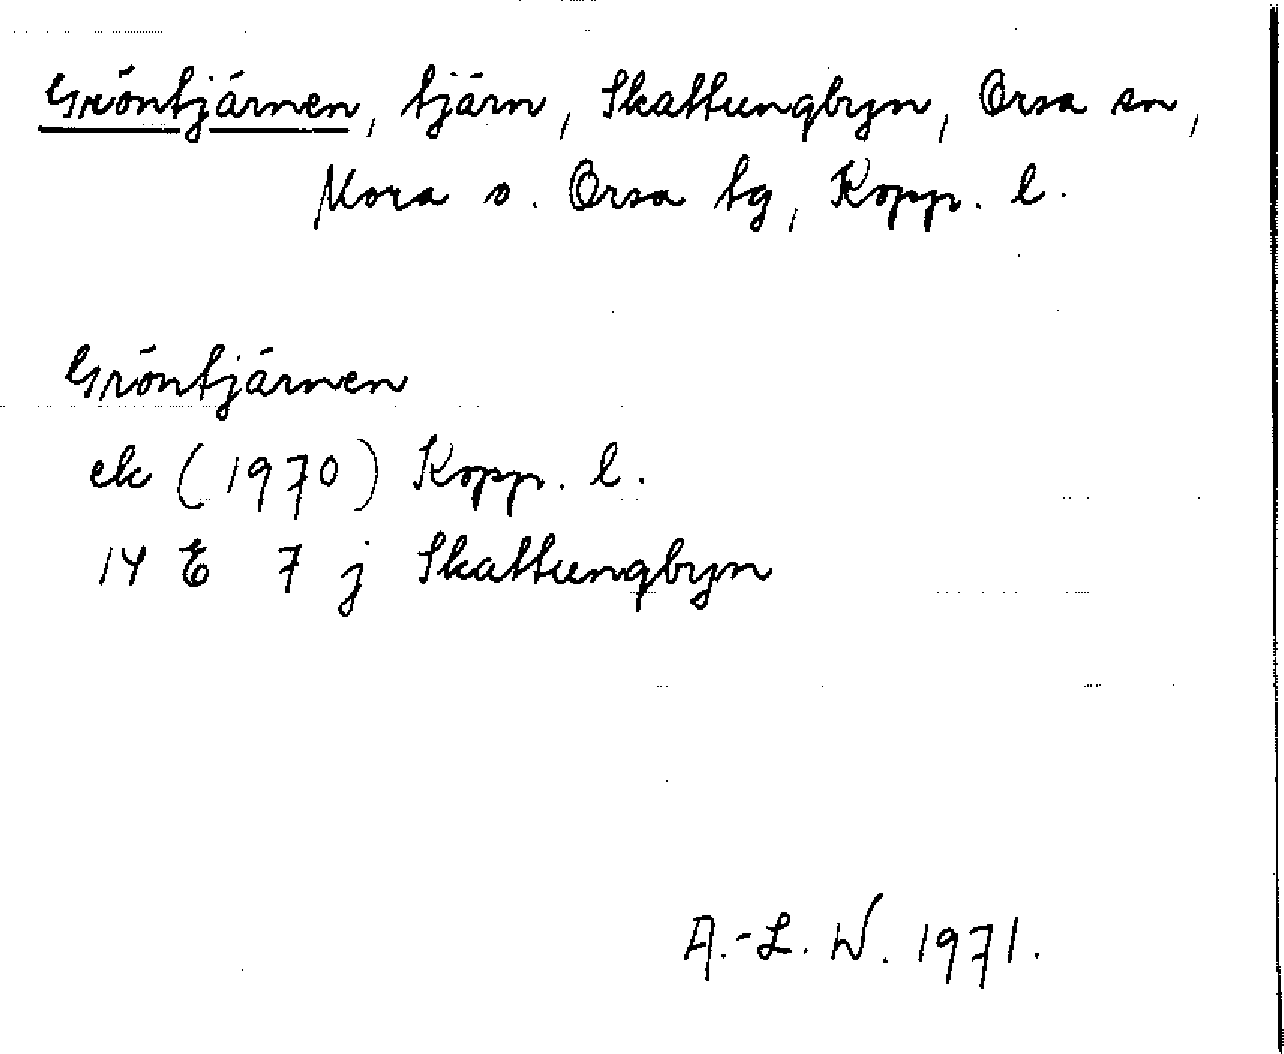 Gröntjärnen, tjärn, Skattungbyn, Orsa sn,
Mora o. Orsa tg, Kopp. l.
Gröntjärnen
ek (1970) Kopp. l.
14 E 7 j Skattungbyn
A.-L. W. 1971.